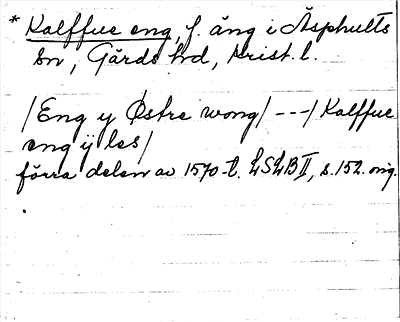 * Kalffue eng, f. äng i Äsphults
sn, Gärds hd, Krist. l.
/Eng y Østre wong/ ---/ Kalffue
eng ÿ les/
förra delen av 1570-t. LSLB II, s. 152. orig.